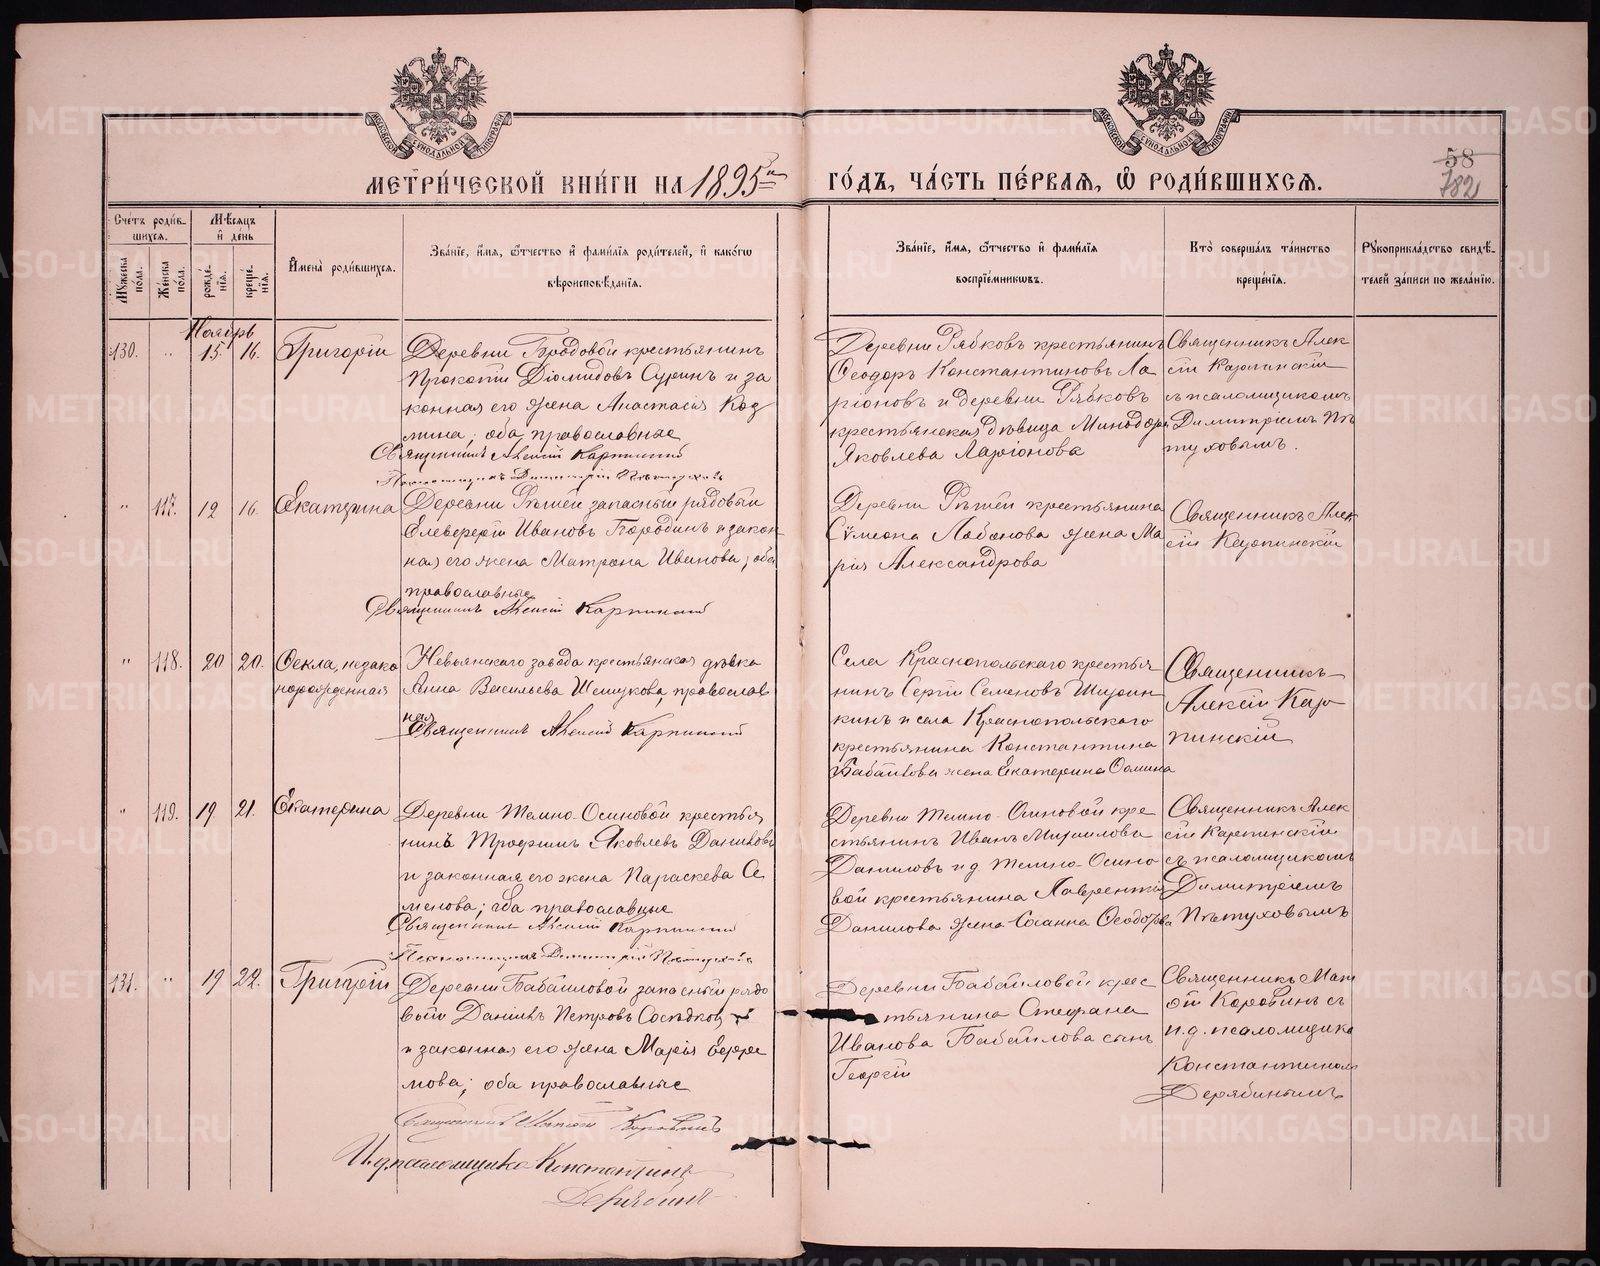 МЕТРИ́ЧЕСКОЙ КНИ́ГИ НА 1895й ГО́ДЪ, ЧА́СТЬ ПЕ́РВАЯ, Ѡ҆ РОДИ́ВШИХСЯ.
58
782
Сче́тъ роди́в-
шихся.
Мѣ́сяцъ
и҆ де́нь
Му́жеска по́ла.
Же́нска по́ла.
рожде́-нія.
креще́-нія.
И҆мена̀ роди́вшихся.
Зва́ніе, и҆́мя, ѻ҆́тчество и҆ фами́лія роди́телей, и҆ како́гѡ
вѣроисповѣ́данія.
Зва́ніе, и҆́мя, ѻ҆́тчество и҆ фами́лія
воспріе́мниковъ.
Кто̀ соверша́лъ та́инство
креще́нія.
Рукоприкла́дство свидѣ́-
телей за́писи по жела́нію.
Ноябрь
130. " 15 16. Григорій
Деревни Бродовой крестьянинъ
Прокопій Діомидовъ Суринъ и за
конная его жена Анастасія Коз
мина; оба православные
Священникъ Алексій Карпинский
Псаломщикъ Димитрій Пѣтуховъ
Деревни Рябковъ крестьянинъ
Ѳеодоръ Константиновъ Ла
ріоновъ и деревни Рябковъ
крестьянская дѣвица Минодора
Яковлева Ларіонова
Священникъ Алек
сій Карпинскій
съ псаломщикомъ
Димитріемъ Пѣ
туховымъ.
" 117. 12 16. Екатерина
Деревни Рѣшей запасный рядовый
Елевферій Ивановъ Бородинъ и закон
ная его жена Матрона Иванова; оба
православные
Священникъ Алексій Карпинский
Деревни Рѣшей крестьянина
Сѵмеона Лобанова жена Ма
рія Александрова
Священникъ Алек
сій Карпинскій
" 118. 20 20. Ѳекла, незако
норожденная
Невьянскаго завода крестьянская дѣвка
Анна Васильева Шешукова, православ
ная
Священникъ Алексій Карпинский
Села Краснопольскаго крестья
нинъ Сергій Семеновъ Ширин
кинъ и села Краснопольскаго
крестьянина Константина
Бабайлова жена Екатерина Ѳомина
Священникъ
Алексій Кар
пинскій
" 119. 19 21. Екатерина
Деревни Темно-Осиновой крестья
нинъ Трофимъ Яковлевъ Даниловъ
и законная его жена Параскева Се
менова; оба православные
Священникъ Алексій Карпинский
Псаломщикъ Димитрій Пѣтуховъ
Деревни Темно-Осиновой кре
стьянинъ Иванъ
Даниловъ и д. Темно-Осино
вой крестьянина Лаврентія
Данилова жена Ѳеодорова
Священникъ Алек
сій Карпинскій
съ псаломщикомъ
Димитріемъ
Пѣтуховымъ
131. " 19 22. Григорій
Деревни Бабайловой запасный рядо
вой Даніилъ Петровъ Сосѣдковъ
и законная его жена Марія Ефре
мова; оба православные
Священникъ Коровинъ
И.д. псаломщика Константинъ
Дерябинъ
Деревни Бабайловой крес
тьянина Стефана
Иванова Бабайлова сынъ
Георгій
Священникъ Мат
ѳій Коровинъ съ
и.д. псаломщика
Константиномъ
Дерябинымъ
METRIKI.GASO-URAL.RU